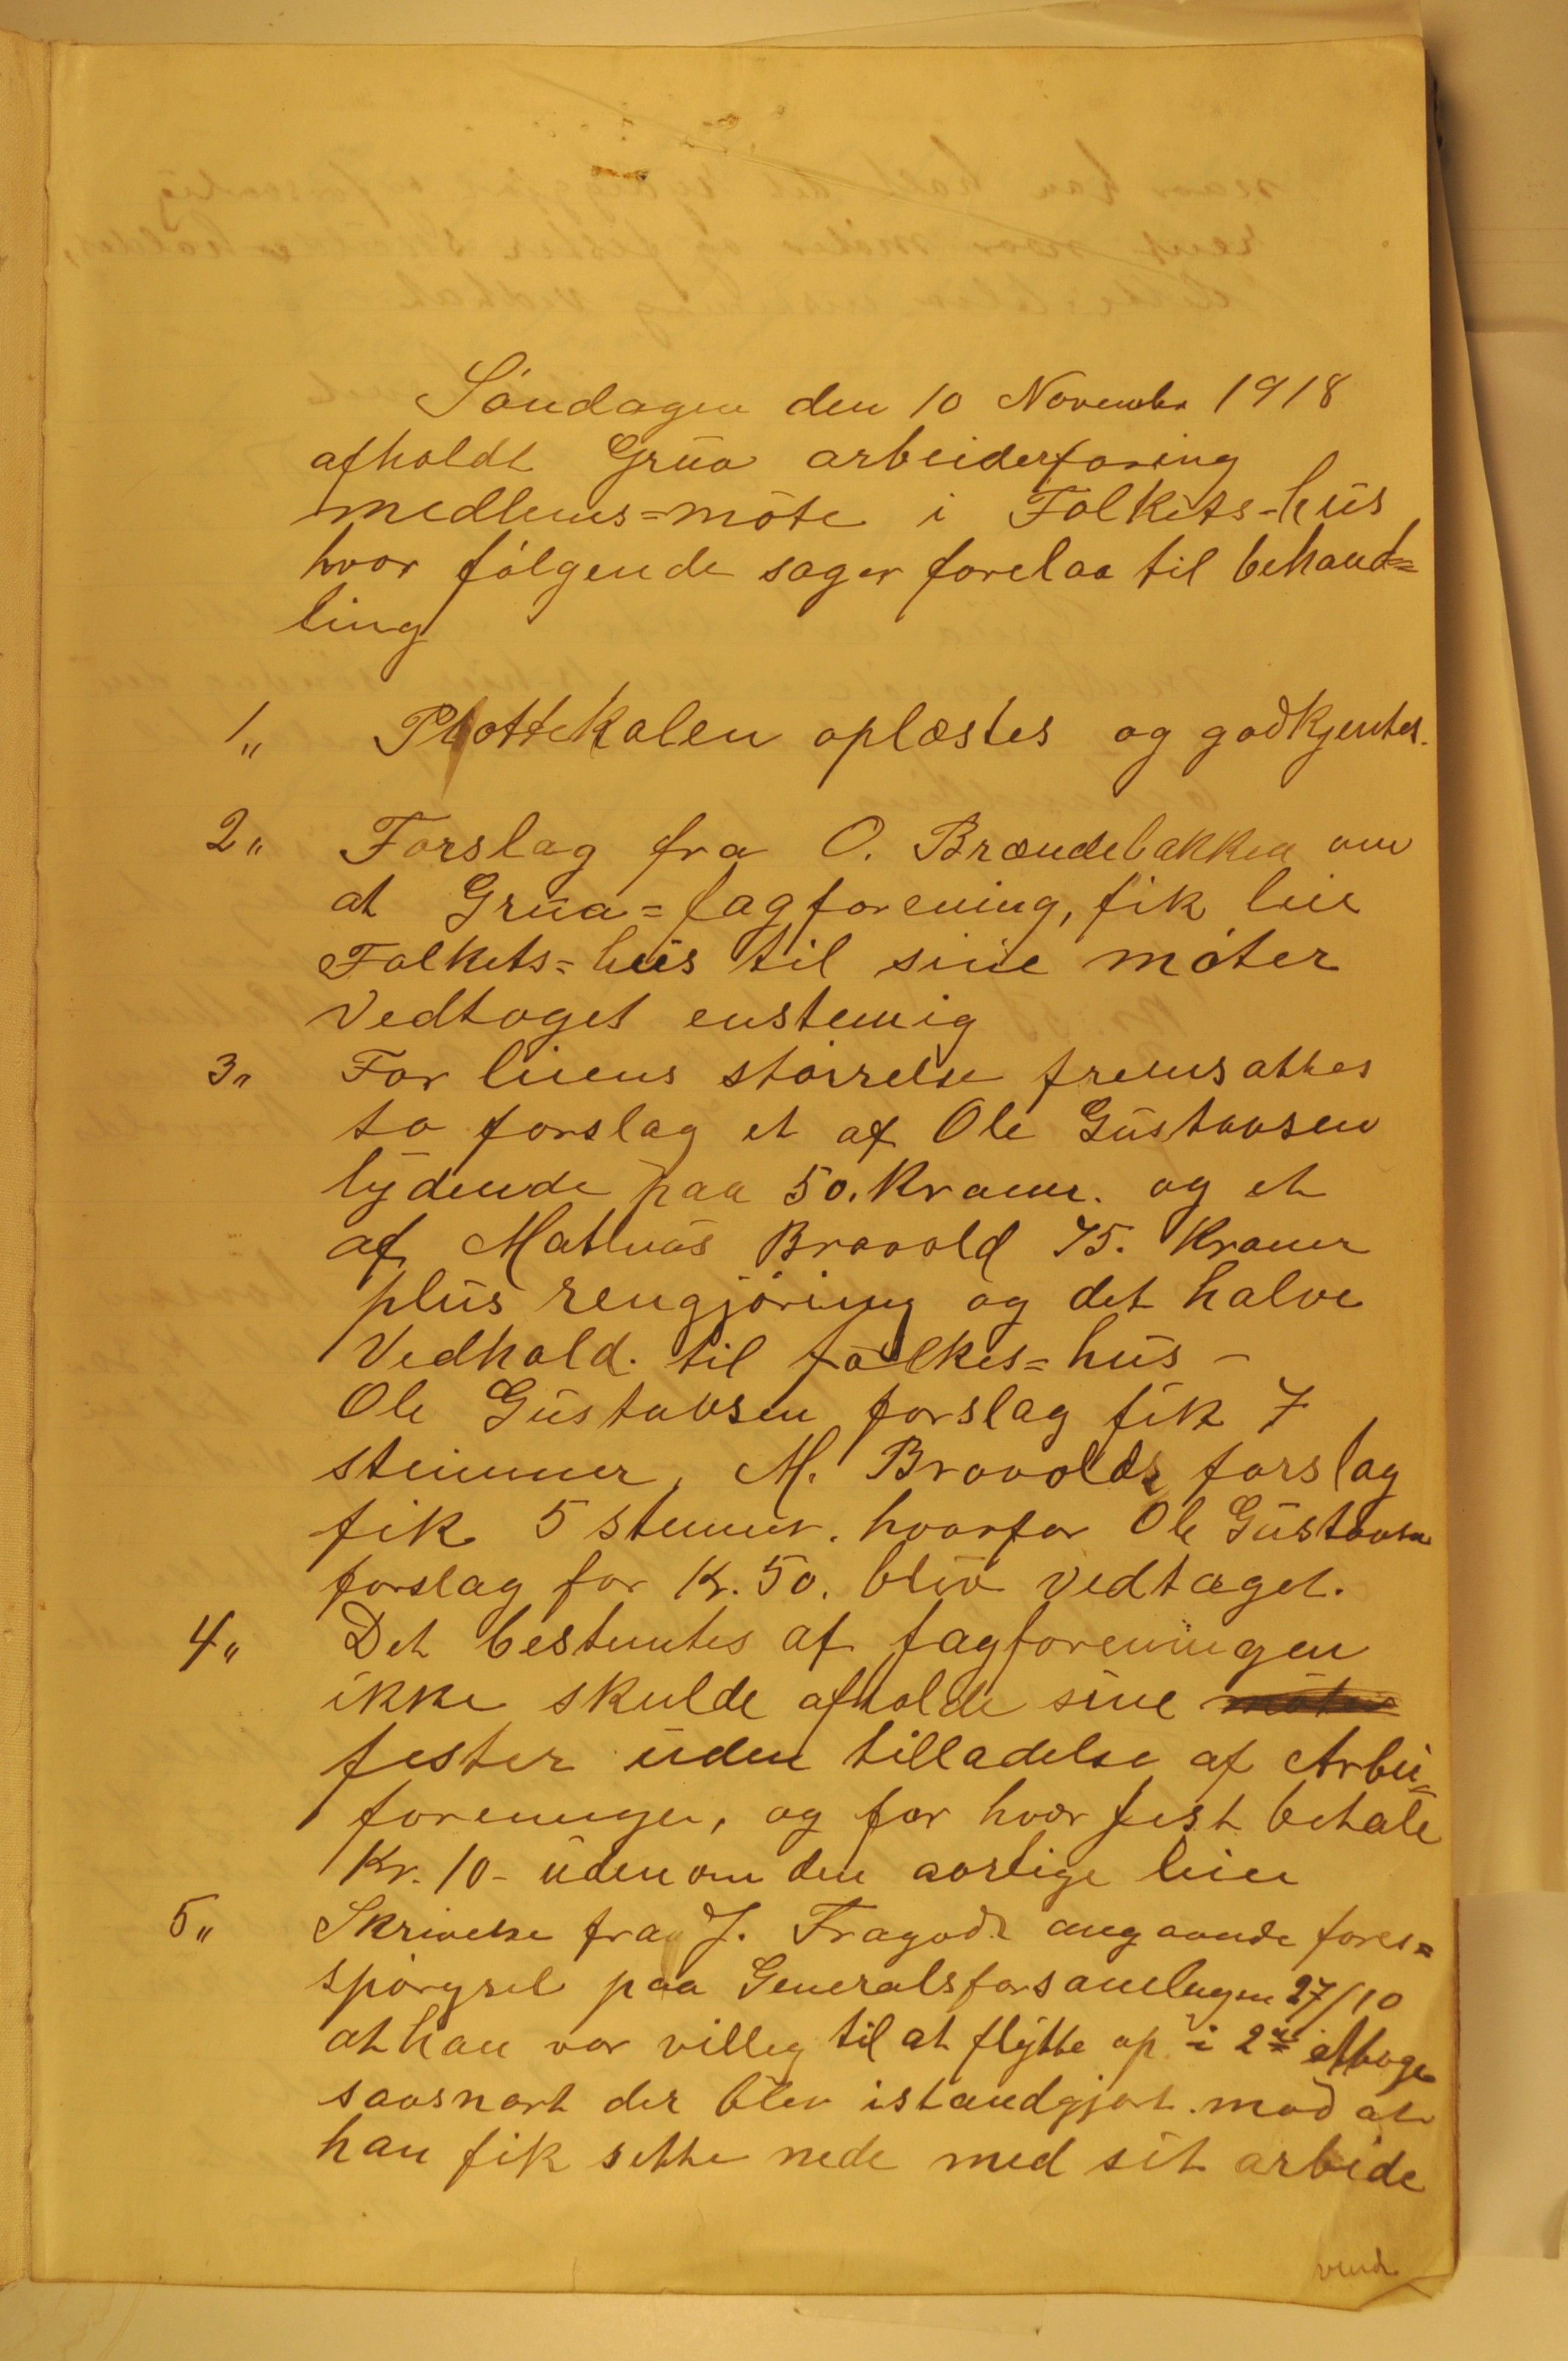 Söndagen den 10 November 1918
afholdt Grua arbeiderforing
medlems=möte i Folkets=hus
hvor følgende sager forelaa til behand=
ling
1" Prottekolen oplæstes og godkjentes.
2" Forslag fra O. Brændebakken om
at Grua=fagforening, fik leie
Folkets=hus til sine møter
Vedtoges enstemig
3" For leiens størrelse fremsattes
to forslag et af Ole Gustavsen
lydende paa 50. Kroner. og et
af Mathias Bravold 75. Kroner
plus rengjøring og det halve
Vedhold. til folkes=hus –
Ole Gustavsen forslag fik 7
stemmer, M. Bravolds forslag
fik 5 stemmer. hvorfor Ole Gustavsen
forslag for Kr. 50. blev vedtaget.
4" Det bestemtes at fagforeningen
ikke skulde afholde sine møter
fester uden tilladelse af Arbei=
foreningen, og for hvor fest betale
Kr. 10- udenom den aarlige leie
5" Skrivelse fra J. angaaende fores=
spørgsel paa Generalsforsamlingen 27/10
at han var villig til at flytte op i 2den etage
saasnart der blev istandgjort. mod at
han fik sitte nede med sit arbeide
vend